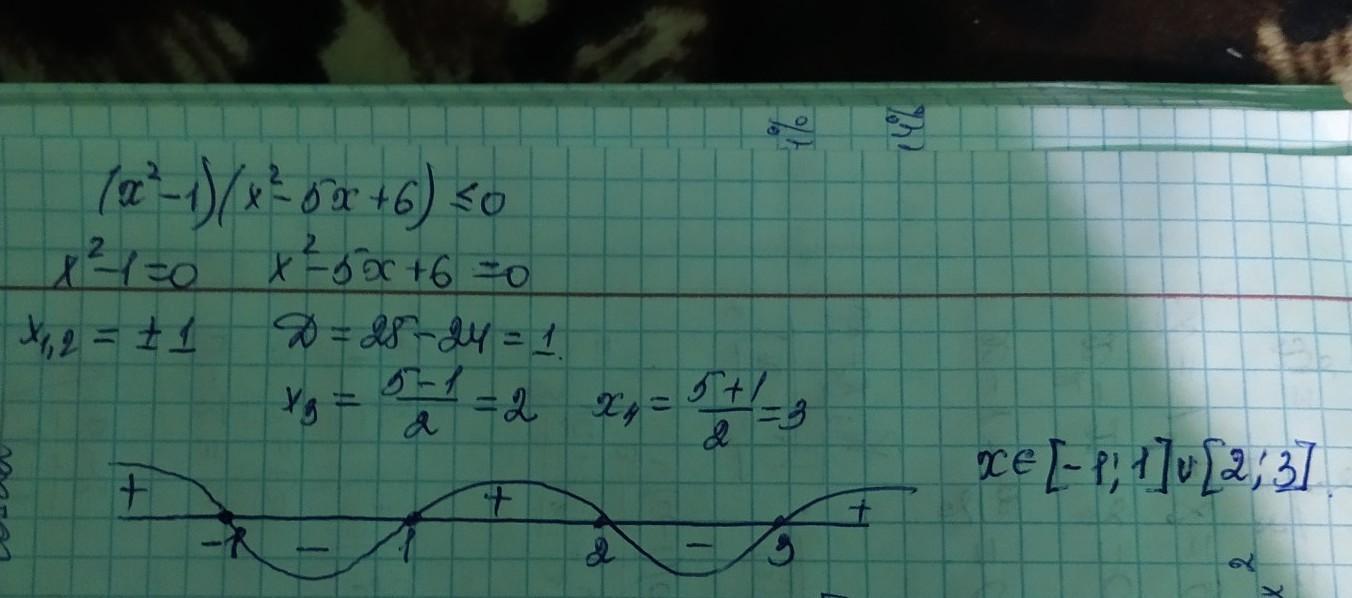 1%
14%
(x²-1)(x²-5x+6)≤0
x²-1=0 x²-5x+6=0
x₁,₂ = ±1 D = 25-24 = 1.
x₃ = (5-1)/2 = 2 x₄ = (5+1)/2 = 3
x∈[-1;1]∪[2;3].
+ - + - +
-1 1 2 3
2
x